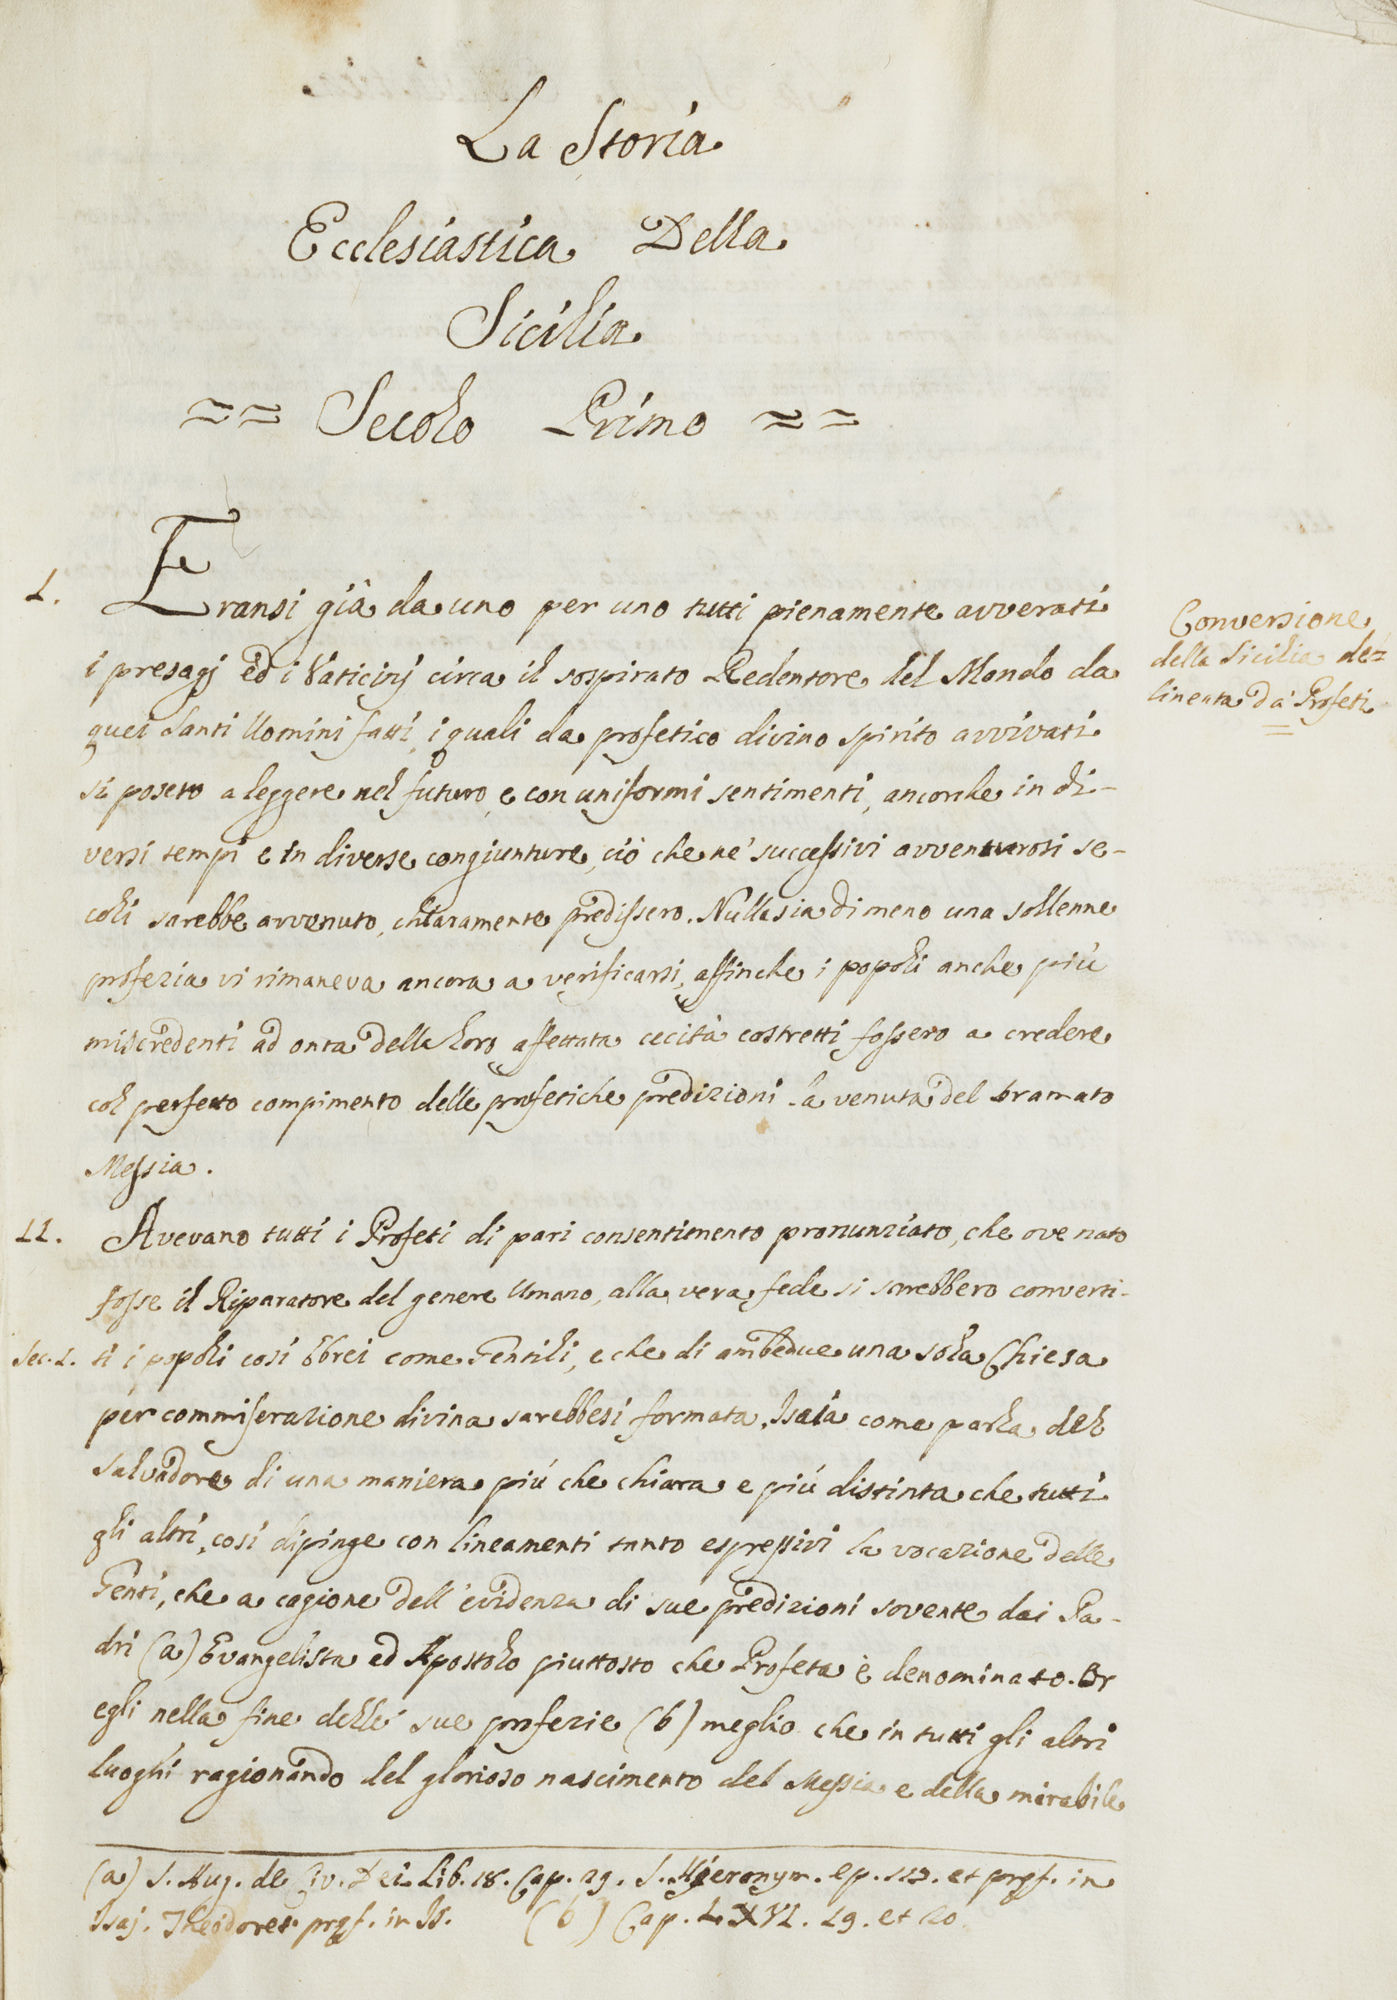 La Storia
Ecclesiastica Della
Sicilia
== Secolo Primo ==
I. Eransi già da uno per uno tutti pienamente avverati
i presagj ed i Vaticinj circa il sospirato Redentore del Mondo da
quei Santi Uomini fatti, i quali da profetico divino spirito avvivati
si posero a leggere nel futuro, e con uniformi sentimenti, ancorche in di-
versi tempi e in diverse congiunture, ciò che ne' successivi avventurosi se-
coli sarebbe avvenuto, chiaramente predissero. Nulla sia di meno una sollenne
profezia vi rimaneva ancora a verificarsi, affinche i popoli anche più
miscredenti ad onta della loro affettata cecità costretti fossero a credere
col perfetto compimento delle profetiche predizioni la venuta del bramato
Messia.
Conversione
della Sicilia de=
lineata da' Profeti
II. Avevano tutti i Profeti di pari consentimento pronunziato, che ove nato
fosse il Riparatore del genere Umano, alla vera fede si sarebbero converti-
Sec. I. ti i popoli così Ebrei come Gentili, e che di ambedue una sola Chiesa
per commiserazione divina sarebbesi formata. Isaia come parla del
Salvadore di una maniera più che chiara e più distinta che tutti
gli altri, così dipinge con lineamenti tanto espressivi la vocazione delle
Genti, che a cagione dell'evidenza di sue predizioni sovente dai Pa-
dri (a) Evangelista ed Apostolo piuttosto che Profeta è denominato. Or
egli nella fine delle sue profezie (b) meglio che in tutti gli altri
luoghi ragionando del glorioso nascimento del Messia e della mirabile
(a) S. Aug. de Civ. Dei Lib. 18. Cap. 29. S. Hieronym. ep. 117. et pręf. in
Isaj. Theodoret pręf. in Is. (b) Cap. LXVI. 19. et 20